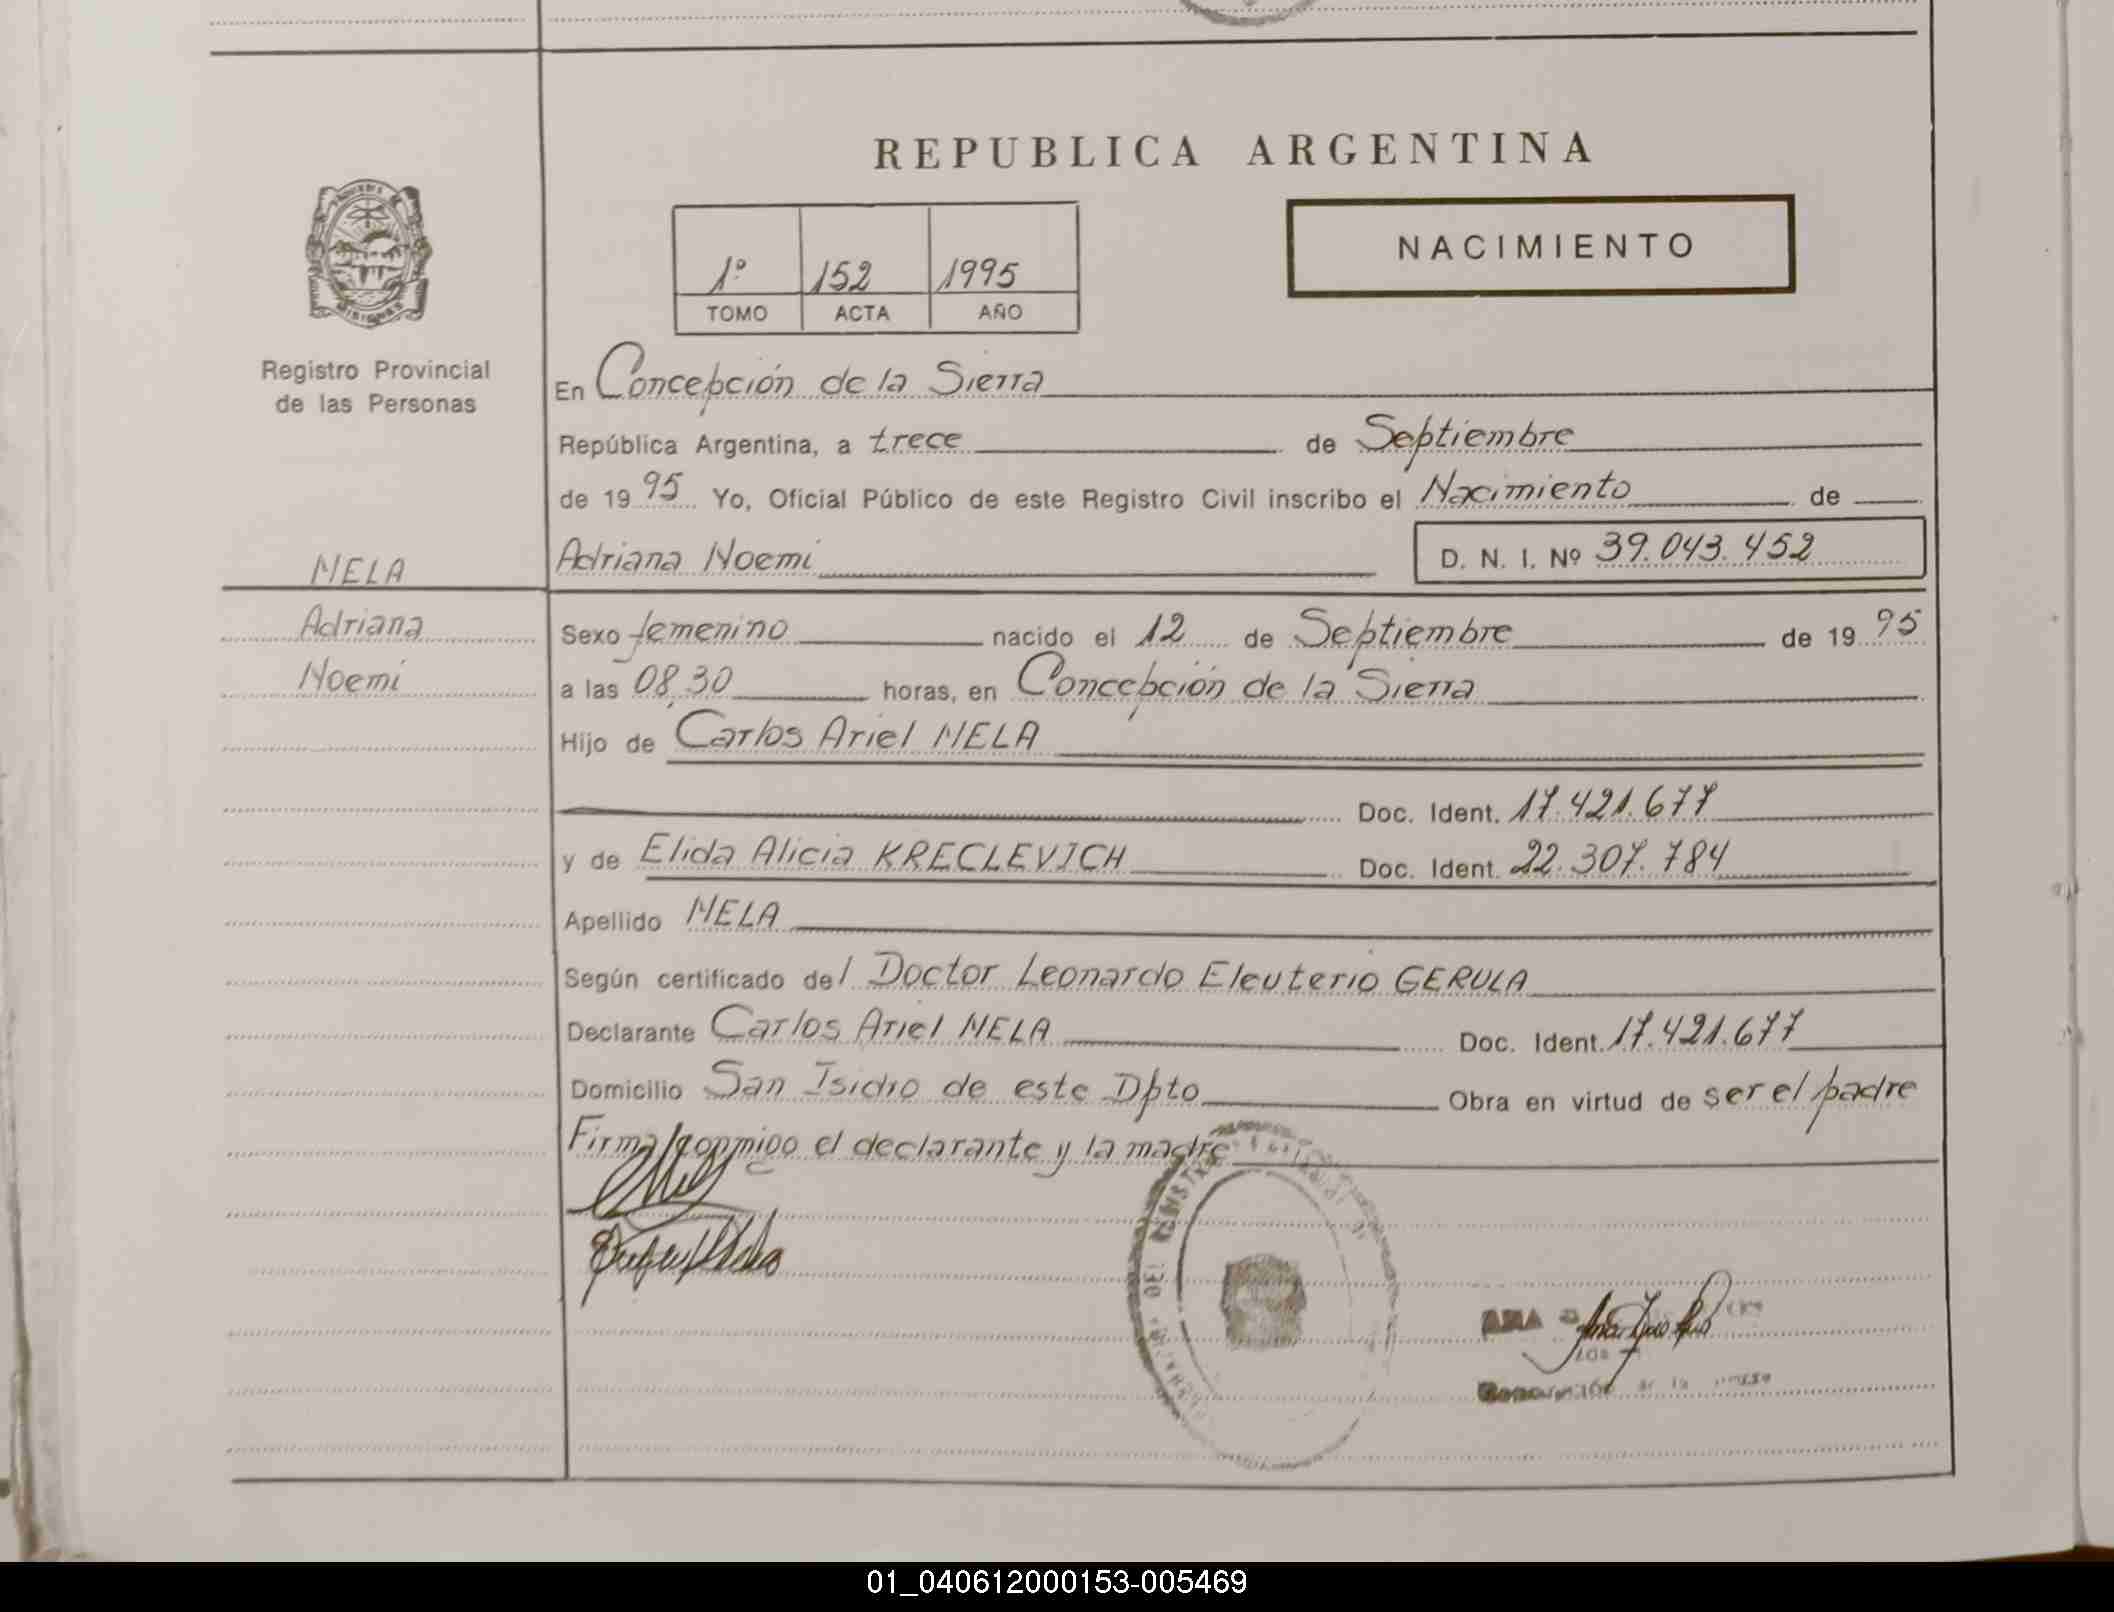 REPUBLICA ARGENTINA
NACIMIENTO
1º 152 1995
TOMO ACTA AÑO
Registro Provincial
de las Personas
En Concepción de la Sierra
República Argentina, a trece de Septiembre
de 1995 Yo, Oficial Público de este Registro Civil inscribo el Nacimiento de
Adriana Noemi D. N. I. Nº 39.043.452
MELA
Adriana
Noemi
Sexo femenino nacido el 12 de Septiembre de 1995
a las 08,30 horas, en Concepción de la Sierra
Hijo de Carlos Ariel MELA
Doc. Ident. 17.421.677
y de Elida Alicia KRECLEVICH Doc. Ident. 22.307.784
Apellido MELA
Según certificado del Doctor Leonardo Eleuterio GERULA
Declarante Carlos Ariel MELA Doc. Ident. 17.421.677
Domicilio San Isidro de este Dpto Obra en virtud de ser el padre
Firma conmigo el declarante y la madre
01_040612000153-005469